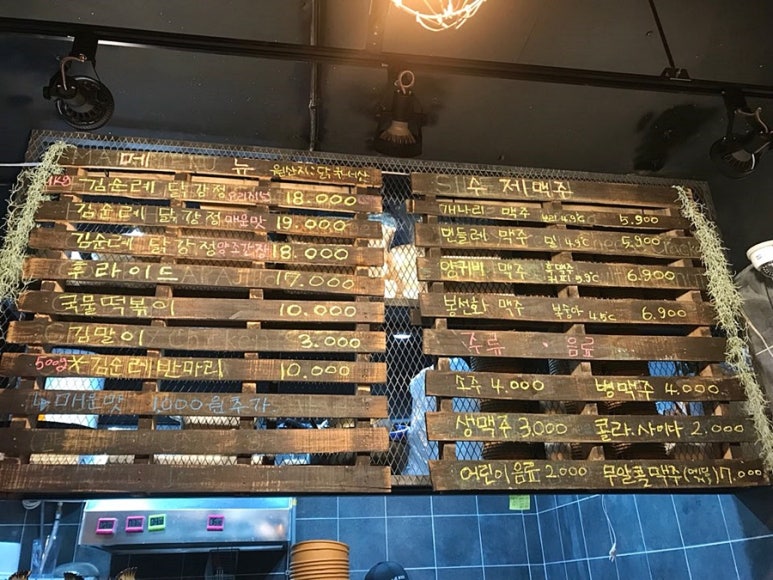 메뉴 원산지:닭국내산
1kg 김순레 닭강정 오리지널 18.000
김순레 닭강정 매운맛 19.000
김순레 닭강정 양조간장 18.000
후라이드 17.000
국물떡볶이 10.000
김말이 3.000
500g 김순레반마리 10.000
매운맛 1.000원추가
수제맥주
개나리 맥주 보리 4.9℃ 5.900
민들레 맥주 밀 4.9℃ 5.900
양귀비 맥주 6.900
봉선화 맥주 복숭아 4.5℃ 6.900
주류 · 음료
소주 4.000 병맥주 4.000
생맥주 3.000 콜라.사이다 2.000
어린이음료 2.000 무알콜맥주 7.000